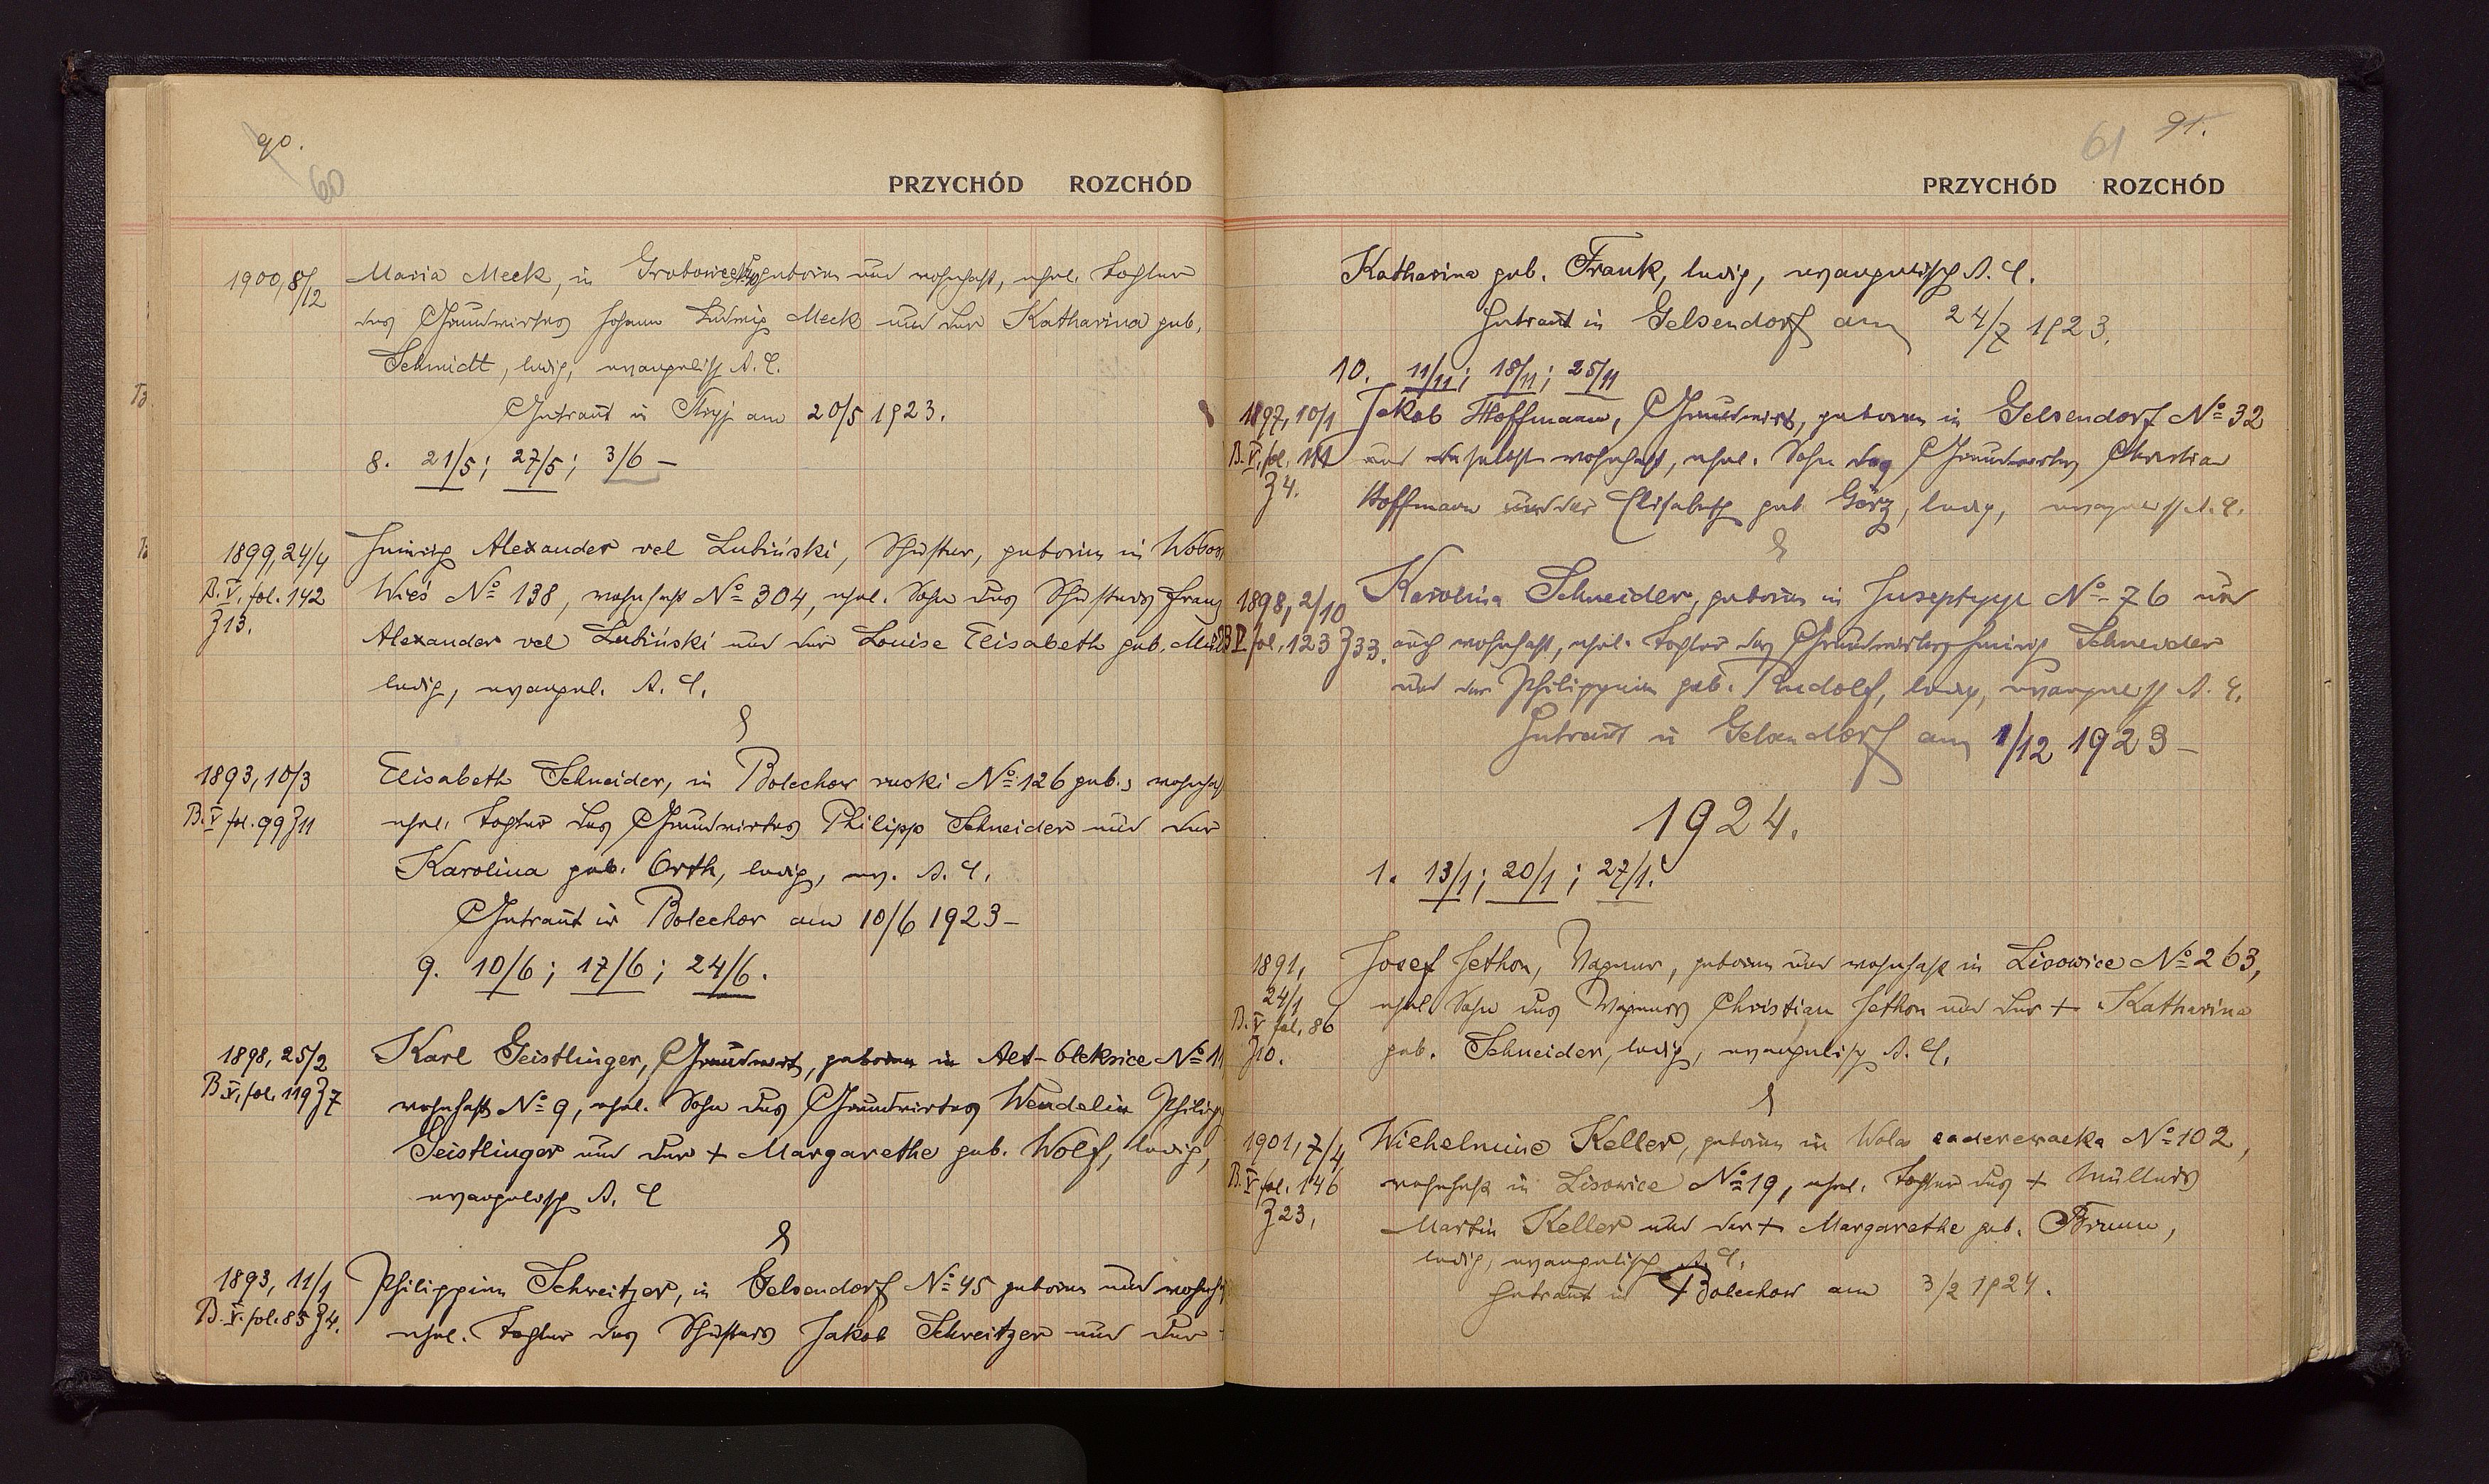 90.
60
PRZYCHÓD ROZCHÓD
1900, 8/12 Maria Meck, in geboren und wohnhaft, ehel. Tochter
des Grundwirtes Johann Ludwig Meck und der Katharina geb.
Schmidt, ledig, evangelisch A. C.
Getraut in Stryj am 20/5 1923.
8. 21/5; 27/5; 3/6 –
1899, 24/4 Heinrich Alexander vel Lubiński, Schuster, geboren in
B. V. fol. 142 Wieś No 138, wohnhaft No 304, ehel. Sohn des Schusters Franz
Z 13. Alexander vel Lubiński und der Louise Elisabeth geb.
ledig, evangel. A. C.
&
1893, 10/3 Elisabeth Schneider, in Bolechow ruski No 126 geb., wohnhaft
B. V fol. 99 Z 11 ehel. Tochter des Grundwirtes Philipp Schneider und der
Karolina geb. Orth, ledig, ev. A. C.
Getraut in Bolechow am 10/6 1923 –
9. 10/6; 17/6; 24/6.
1898, 25/2 Karl Geistlinger, Grundwirt, geboren in Alt-Oleksice No 11
B V. fol. 119 Z 7 wohnhaft No 9, ehel. Sohn des Grundwirtes Wendelin Philipp
Geistlinger und der + Margarethe geb. Wolf, ledig,
evangelisch A. C
&
1893, 11/1 Philippine Schweitzer, in Gelsendorf No 45 geboren und wohnhaft
B. V. fol. 85 Z 4. ehel. Tochter des Schusters Jakob Schweitzer und der
61 91.
PRZYCHÓD ROZCHÓD
Katharina geb. Frank, ledig, evangelisch A. C.
Getraut in Gelsendorf am 24/7 1923.
10. 11/11; 18/11; 25/11
1897, 10/1 Jakob Hoffmann, Grundwirt, geboren in Gelsendorf No 32
B. V. fol. 111 und daselbst wohnhaft, ehel. Sohn des Grundwirtes Christian
Z 4. Hoffmann und der Elisabeth geb. Görz, ledig, evangelisch A. C.
&
1898, 2/10 Karolina Schneider, geboren in No 76 und
B V. fol. 123 Z 33. auch wohnhaft, ehel. Tochter des Grundwirtes Heinrich Schneider
und der Philippine geb. Rudolf, ledig, evangelisch A. C.
Getraut in Gelsendorf am 1/12 1923 –
1924.
1. 13/1; 20/1; 27/1.
1891, Josef Jethon, Wagner, geboren und wohnhaft in Lisowice No 263,
24/1
B. V fol. 86 ehel. Sohn des Wagners Christian Jethon und der + Katharina
Z 10. geb. Schneider, ledig, evangelisch A. C.
&
1901, 7/4 Wilhelmine Keller, geboren in Wola zaderewacka No 102,
B. V fol. 146 wohnhaft in Lisowice No 19, ehel. Tochter des + Müllers
Z 23. Martin Keller und der + Margarethe geb.
ledig, evangelisch A. C.
Getraut in Bolechow am 3/2 1924.